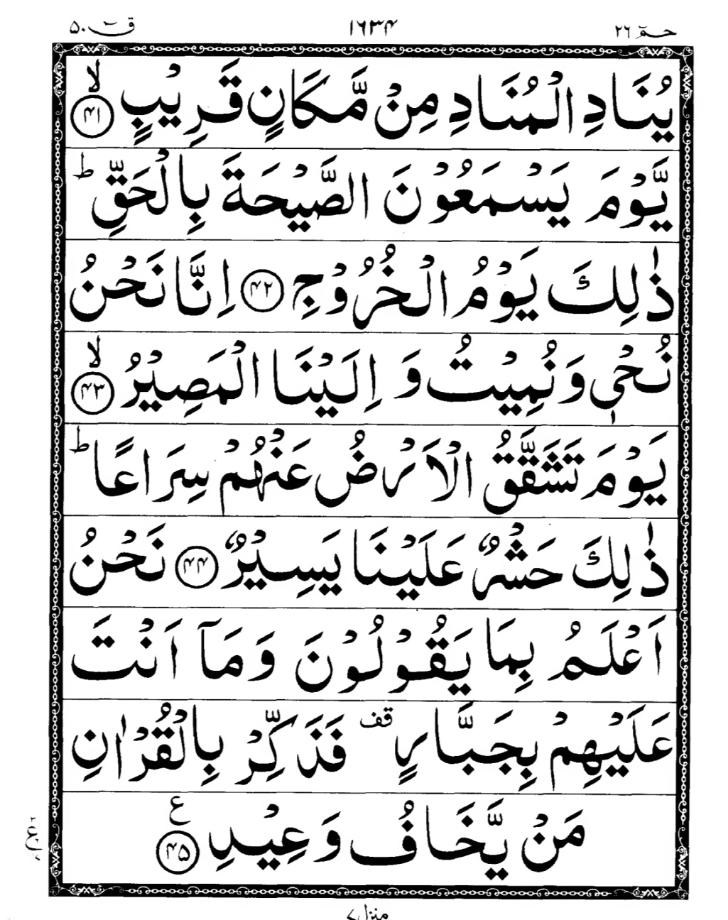 حٰمٓ ٢٦ ١٦٣۴ قٓ ۵۰
يُنَادِ الْمُنَادِ مِنْ مَّكَانٍ قَرِيْبٍ ۙ﴿۴۱﴾
يَّوْمَ يَسْمَعُوْنَ الصَّيْحَةَ بِالْحَقِّ ؕ
ذٰلِكَ يَوْمُ الْخُرُوْجِ ﴿۴۲﴾ اِنَّا نَحْنُ
نُحْیٖ وَنُمِيْتُ وَ اِلَيْنَا الْمَصِيْرُ ۙ﴿۴۳﴾
يَوْمَ تَشَقَّقُ الْاَرْضُ عَنْهُمْ سِرَاعًا ؕ
ذٰلِكَ حَشْرٌ عَلَيْنَا يَسِيْرٌ ﴿۴۴﴾ نَحْنُ
اَعْلَمُ بِمَا يَقُوْلُوْنَ وَمَاۤ اَنْتَ
عَلَيْهِمْ بِجَبَّارٍ قف فَذَكِّرْ بِالْقُرْاٰنِ
مَنْ يَّخَافُ وَعِيْدِ ﴿۴۵﴾ ع
منزل ٧